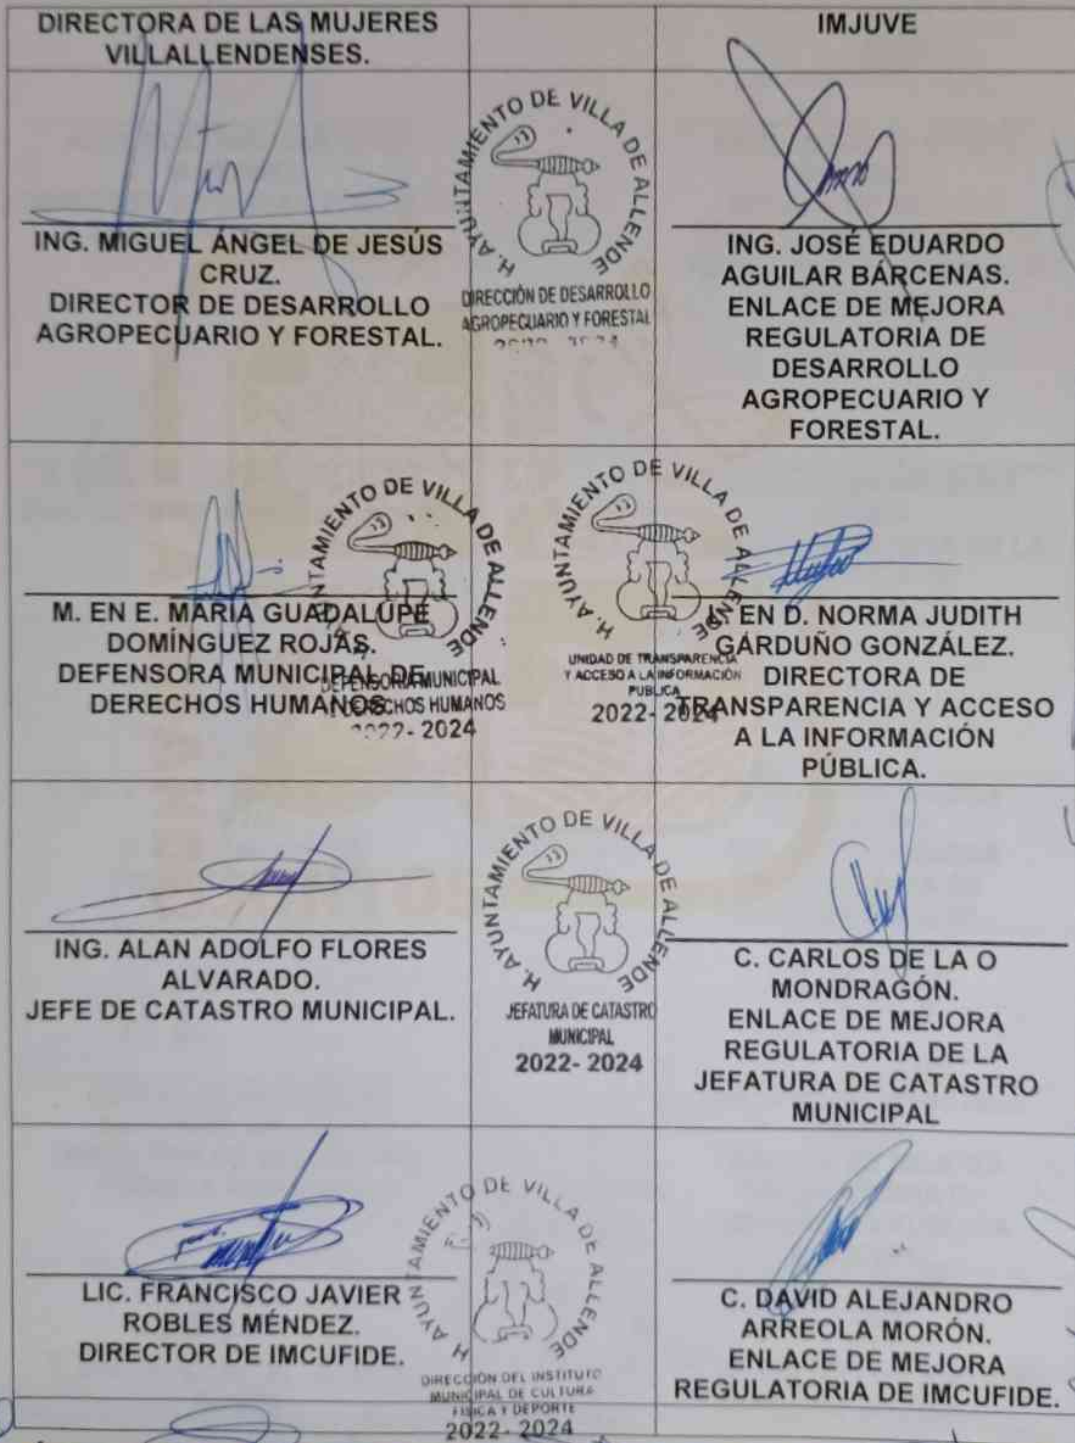 DIRECTORA DE LAS MUJERES
VILLALLENDENSES.
IMJUVE
ING. MIGUEL ÁNGEL DE JESÚS
CRUZ.
DIRECTOR DE DESARROLLO
AGROPECUARIO Y FORESTAL.
H. AYUNTAMIENTO DE VILLA DE ALLENDE
DIRECCIÓN DE DESARROLLO
AGROPECUARIO Y FORESTAL
ING. JOSÉ EDUARDO
AGUILAR BÁRCENAS.
ENLACE DE MEJORA
REGULATORIA DE
DESARROLLO
AGROPECUARIO Y
FORESTAL.
M. EN E. MARÍA GUADALUPE
DOMÍNGUEZ ROJAS.
DEFENSORA MUNICIPAL DE
DERECHOS HUMANOS.
AYUNTAMIENTO DE VILLA DE ALLENDE
DEFENSORÍA MUNICIPAL
DERECHOS HUMANOS
2022- 2024
H. AYUNTAMIENTO DE VILLA DE ALLENDE
UNIDAD DE TRANSPARENCIA
Y ACCESO A LA INFORMACIÓN
PUBLICA
2022- 2024
L. EN D. NORMA JUDITH
GARDUÑO GONZÁLEZ.
DIRECTORA DE
TRANSPARENCIA Y ACCESO
A LA INFORMACIÓN
PÚBLICA.
ING. ALAN ADOLFO FLORES
ALVARADO.
JEFE DE CATASTRO MUNICIPAL.
H. AYUNTAMIENTO DE VILLA DE ALLENDE
JEFATURA DE CATASTRO
MUNICIPAL
2022- 2024
C. CARLOS DE LA O
MONDRAGÓN.
ENLACE DE MEJORA
REGULATORIA DE LA
JEFATURA DE CATASTRO
MUNICIPAL
LIC. FRANCISCO JAVIER
ROBLES MÉNDEZ.
DIRECTOR DE IMCUFIDE.
H AYUNTAMIENTO DE VILLA DE ALLENDE
DIRECCIÓN DEL INSTITUTO
MUNICIPAL DE CULTURA
FISICA Y DEPORTE
2022- 2024
C. DAVID ALEJANDRO
ARREOLA MORÓN.
ENLACE DE MEJORA
REGULATORIA DE IMCUFIDE.